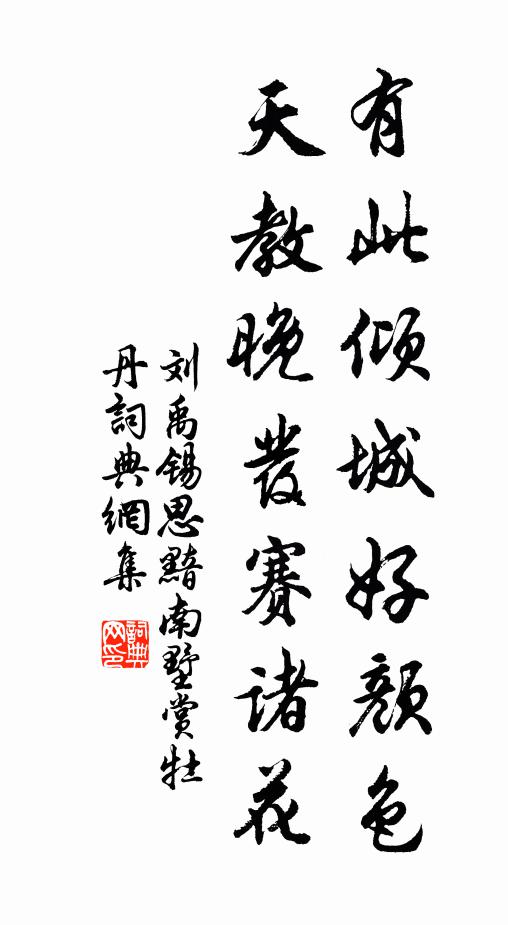 有此倾城好颜色
天教晚發赛诸花
刘禹锡思黯南墅赏牡
丹詞典網集
詞典
网印